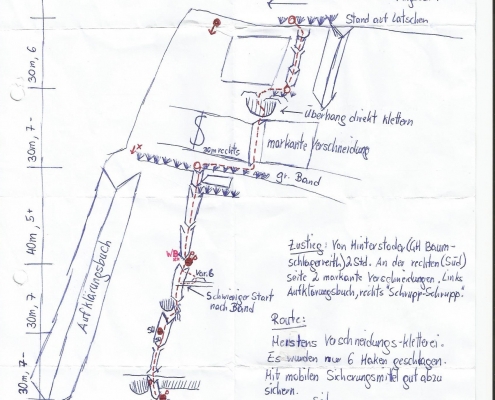 Stand auf Latschen
30m, 6
überhang direkt klettern
30m, 7-
30m rechts
markante Verschneidung
gr. Band
40m, 5+
WB
Var. 6
Schwieriger Start
nach Band
30m, 7
Aufklärungsbuch
30m, 7-
Zustieg: Von Hinterstoder (GH Baum-
schlagerreith) 2 Std. An der rechten (Süd)
seite 2 markante Verschneidungen. Links
Aufklärungsbuch, rechts "Schrupp-Schrupp".
Route:
Meistens Verschneidungs-kletterei.
Es wurden nur 6 Haken geschlagen.
Mit mobilen Sicherungsmittel gut abzu
sichern.